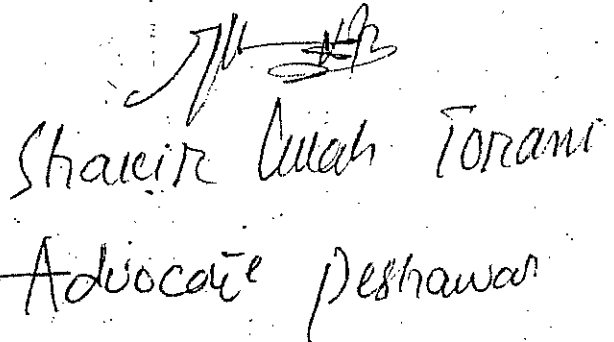 Shakir Ullah Torani
Advocate Peshawar